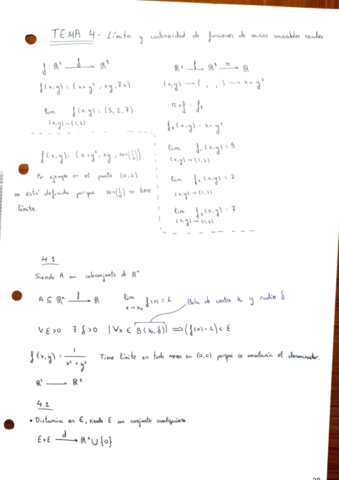 TEMA 4 - Límite y continuidad de funciones de varias variables reales
f: R² —f→ R³
R² —f→ R³ —π→ R
f(x,y) = (x+y², xy, 7x)
(x,y) → ( , , ) → x+y²
lim f(x,y) = (5,2,7)
(x,y)→(1,2)
f₁(x,y) = x+y²
lim f₁(x,y) = 5
(x,y)→(1,2)
f(x,y) = (x+y², xy, sen(1/x))
Por ejemplo en el punto (0,2) no
está definido porque sen(1/x) no tiene
límite.
lim f₂(x,y) = 2
(x,y)→(1,2)
lim f₃(x,y) = 7
(x,y)→(1,2)
4.1
Siendo A un subconjunto de Rⁿ
A ⊆ Rⁿ —f→ R
lim f(x) = L
x→x₀
Bola de centro x₀ y radio δ
∀ε>0 ∃δ>0 | ∀x ∈ B(x₀,δ) ⟹ |f(x)-L| < ε
f(x,y) = 1/(x²+y²) Tiene límite en todo menos en (0,0) porque se anularía el denominador.
4.2
• Distancia en E, siendo E un conjunto cualquiera.
E×E —d→ R⁺∪{0}